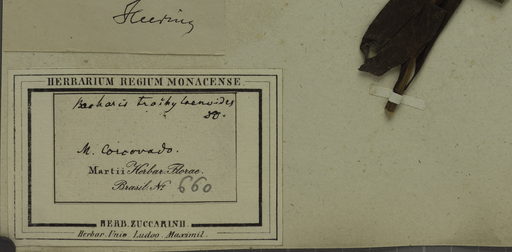 Heering
HERBARIUM REGIUM MONACENSE.
Baccharis trachylaenoides
DC.
M. Corcovado.
Martii Herbar. Florae
Brasil. No 660
HERB. ZUCCARINII
Herbar. Univ. Ludov. Maximil.